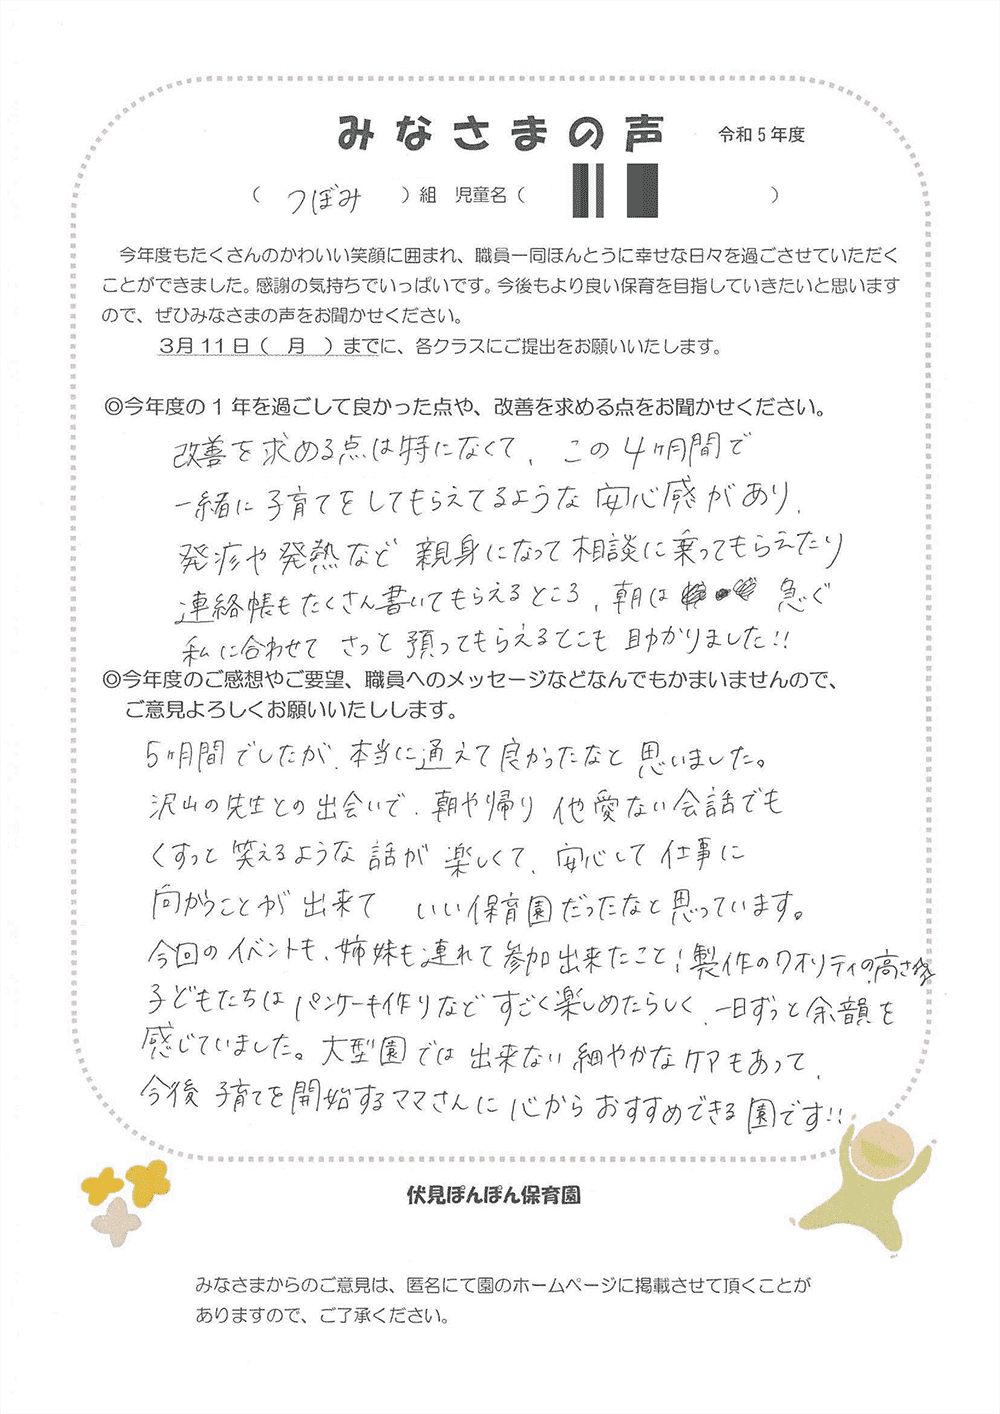 みなさまの声 令和5年度
( つぼみ )組 児童名( )
今年度もたくさんのかわいい笑顔に囲まれ、職員一同ほんとうに幸せな日々を過ごさせていただく
ことができました。感謝の気持ちでいっぱいです。今後もより良い保育を目指していきたいと思います
ので、ぜひみなさまの声をお聞かせください。
3月11日( 月 )までに、各クラスにご提出をお願いいたします。
◎今年度の1年を過ごして良かった点や、改善を求める点をお聞かせください。
改善を求める点は特になくて、この4ヶ月間で
一緒に子育てをしてもらえてるような安心感があり、
発疹や発熱など親身になって相談に乗ってもらえたり
連絡帳もたくさん書いてもらえるところ、朝は 急ぐ
私に合わせて さっと預ってもらえるとこも助かりました!!
◎今年度のご感想やご要望、職員へのメッセージなどなんでもかまいませんので、
ご意見よろしくお願いいたしします。
5ヶ月間でしたが、本当に通えて良かったなと思いました。
沢山の先生との出会いで、朝や帰り他愛ない会話でも
くすっと笑えるような話が楽しくて、安心して仕事に
向かうことが出来て いい保育園だったなと思っています。
今回のイベントも、姉妹も連れて参加出来たこと!製作のクオリティの高さ
子どもたちはパンケーキ作りなどすごく楽しめたらしく、一日ずっと余韻を
感じていました。大型園では出来ない細やかなケアもあって、
今後子育てを開始するママさんに心からおすすめできる園です!!
伏見ぽんぽん保育園
みなさまからのご意見は、匿名にて園のホームページに掲載させて頂くことが
ありますので、ご了承ください。